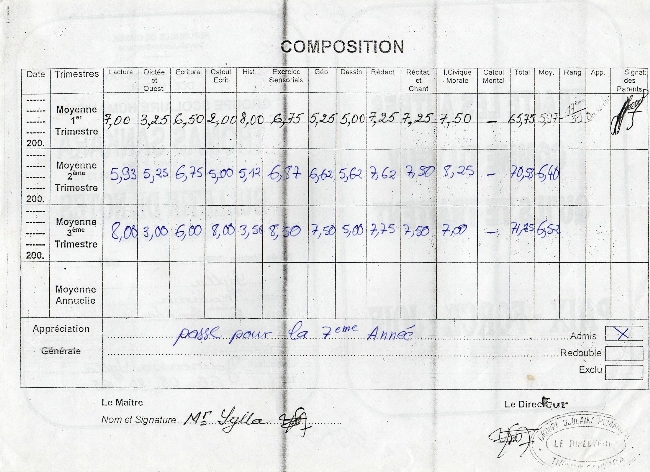 COMPOSITION
Date Trimestres Lecture Dictée et Quest Ecriture Calcul Ecrit Hist. Exercice Sensoriels Géo Dessin Rédact Récitat et Chant I.Civique - Morale Calcul Mental Total Moy. Rang App. Signat. des Parents
200. Moyenne 1er Trimestre 7,00 3,25 6,50 2,00 8,00 6,75 5,25 5,00 7,25 7,25 7,50 - 65,75
200. Moyenne 2ème Trimestre 5,93 5,25 6,75 5,00 5,12 6,87 6,62 5,62 7,62 7,50 8,25 - 70,50 6,40
200. Moyenne 3ème Trimestre 8,00 3,00 6,00 8,00 3,50 8,50 7,50 5,00 7,75 7,50 7,00 - 71,75 6,52
Moyenne Annuelle
Appréciation Générale passe pour la 7ème Année
Admis X
Redouble
Exclu
Le Maître
Nom et Signature Mr Sylla
Le Directeur
LE DIRECTEUR